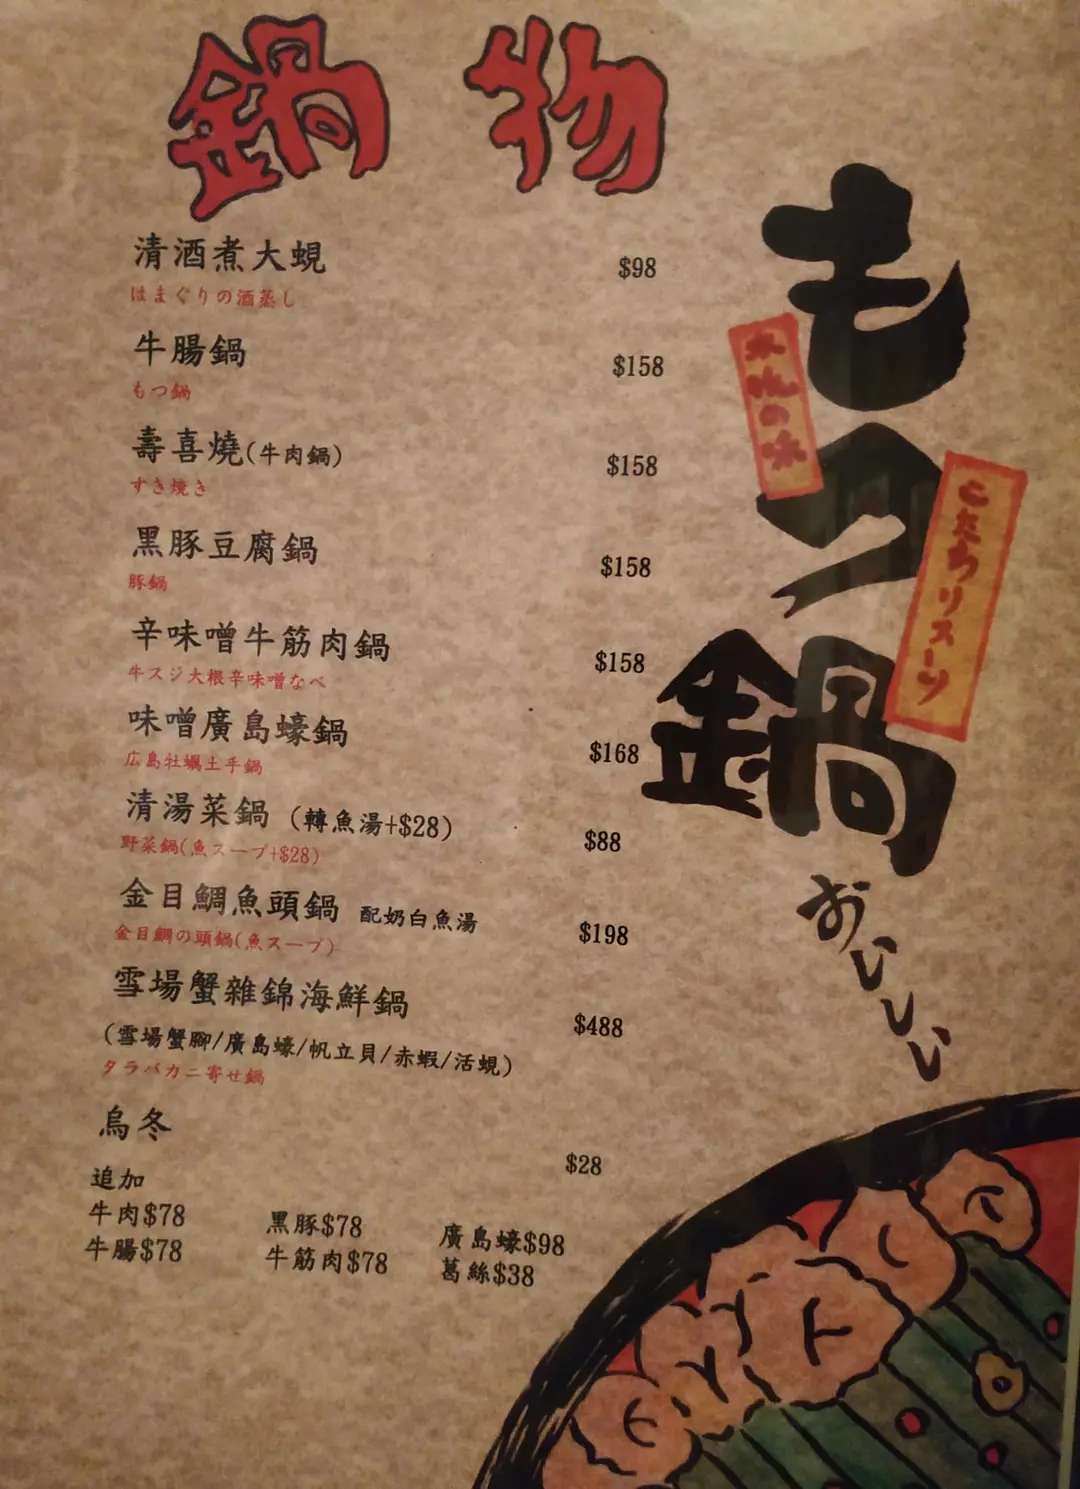 鍋物
清酒煮大蜆 $98
はまぐりの酒蒸し
牛腸鍋 $158
もつ鍋
壽喜燒(牛肉鍋) $158
すき焼き
黑豚豆腐鍋 $158
豚鍋
辛味噌牛筋肉鍋 $158
牛スジ大根辛味噌なべ
味噌廣島蠔鍋 $168
広島牡蠣土手鍋
清湯菜鍋 (轉魚湯+$28) $88
野菜鍋(魚スープ+$28)
金目鯛魚頭鍋 配奶白魚湯 $198
金目鯛の頭鍋(魚スープ)
雪場蟹雜錦海鮮鍋 $488
(雪場蟹腳/廣島蠔/帆立貝/赤蝦/活蜆)
タラバカニ寄せ鍋
烏冬 $28
追加
牛肉$78 黑豚$78 廣島蠔$98
牛腸$78 牛筋肉$78 葛絲$38
もつ鍋
の味
こだわりスープ
おいしい